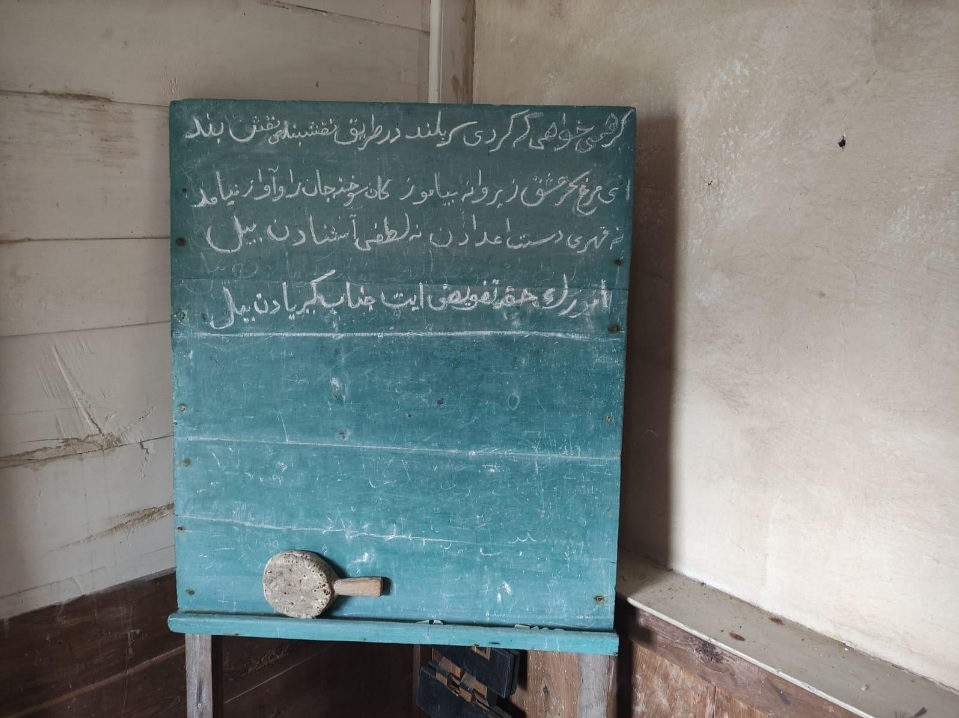 گر همی خواهی که گردی سر بلند در طریق نقشبندی نقش بند
ای مرغ سحر عشق ز پروانه بیاموز کان سوخته جان را و آواز نیامد
نه قهری دست اعدادن نه لطفی آشنادن بیل
أمورك حقه تفویض ایت جناب کبریادن بیل